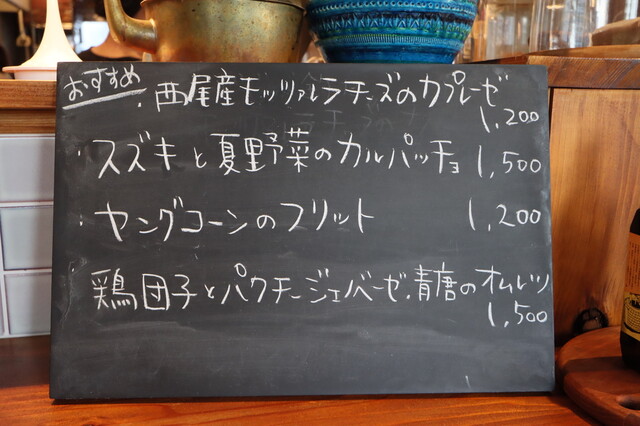 おすすめ
・西尾産モッツァレラチーズのカプレーゼ
1,200
・スズキと夏野菜のカルパッチョ 1,500
・ヤングコーンのフリット 1,200
鶏団子とパクチー・ジェノベーゼ・青唐のオムレツ
1,500